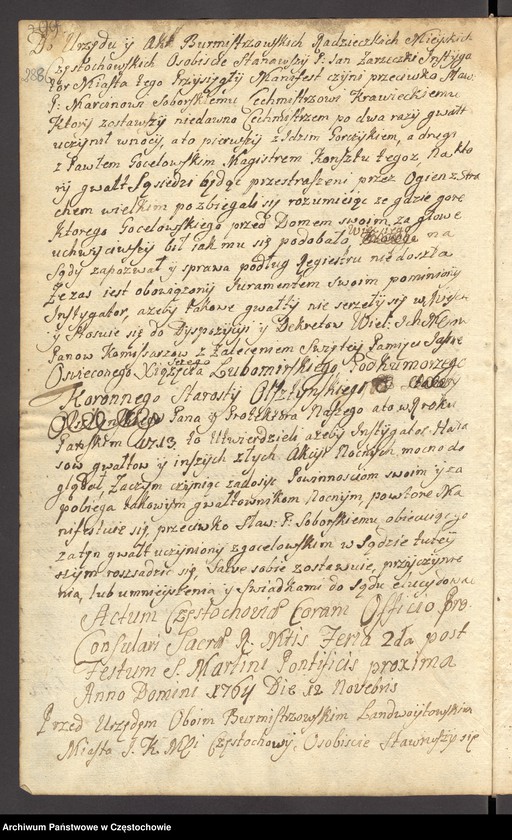 299.
288
Do Urzędu ÿ Akt Burmistrzowskich Radzieckich Mieyskich
Częstochowskich Osobiscie Stanąwszÿ P: Jan Zarzucki Instÿga
tor Miasta tego Przÿsięgłÿ Manifest czÿni przeciwko Sław:
P: Marcinowi Soborskiemu Cechmistrzowi Krawieckiemu
Ktorÿ zostawszÿ niedawno Cechmistrzem po dwa razÿ gwałt
uczÿnił wnocÿ, ato pierwszÿ z Idzim Gorczÿkiem, a drugi
z Pawłem Gocelowskim Magistrem Konsztu tegoż, Na kto
rÿ gwałt Sąsiedzi będąc przestraszeni przez Ogien z Stra
chem wielkim pozbiegali się rozumieiąc ze gdzie gore
Ktorego Gocelowskiego przed Domem swoim za głowe
uchwÿciwszÿ bił jak mu się podobało, na
Sądÿ zapozwał ÿ sprawa podług Regiestru nie doszła
Ze zas iest obowiązonÿ Juramentem swoim pomienionÿ
Instÿgator, azebÿ takowe gwałtÿ nie serzełÿ się w
ÿ stosuie się do Dÿspozÿcÿi ÿ Dekretow Wiel: Ich
Panow Komisarzow z Zaleceniem Swiętej Pamięci Jaśnie
Oswieconego Xiązęcia Jerzego Lubomirskiego, Podkomorzego
Koronnego Starostÿ Olsztÿnskiego
Pana ÿ Protektora Naszego ato w Roku
Panskim 1713 to Utwierdzieli azebÿ Instÿgator Hała
sow gwałtow ÿ inszÿch złÿch Akcÿi Nocnÿch mocno do
glądał, Zaczÿm czÿniąc zadosÿc Powinnosciom swoim ÿ za
pobiega takowÿm gwałtownikom Nocnÿm, powtore Ma
nifestuie się, przeciwko Sław: P: Soborskiemu, obiecuiąc
za tÿn gwałt uczÿnionÿ z Gocelowskim w Sądzie tuteÿ
szÿm rozsądzic się, Salve sobie zostawuie, przÿczÿnie
nia, lub umnieÿszenia ÿ Swiadkami do Sądu elucÿdowac
Actum Częstochoviæ Coram Officio Pro
Consulari Sacræ R. Mttis Feria 2da post
Festum S. Martini Pontificis proxima
Anno Domini 1764 Die 12 Novebris
Przed Urzędem Oboim Burmistrzowskim Landwoÿtowskim
Miasta J. K. Mści Częstochowÿ, Osobiscie Stawiwszÿ się
Archiwum Państwowe w Częstochowie